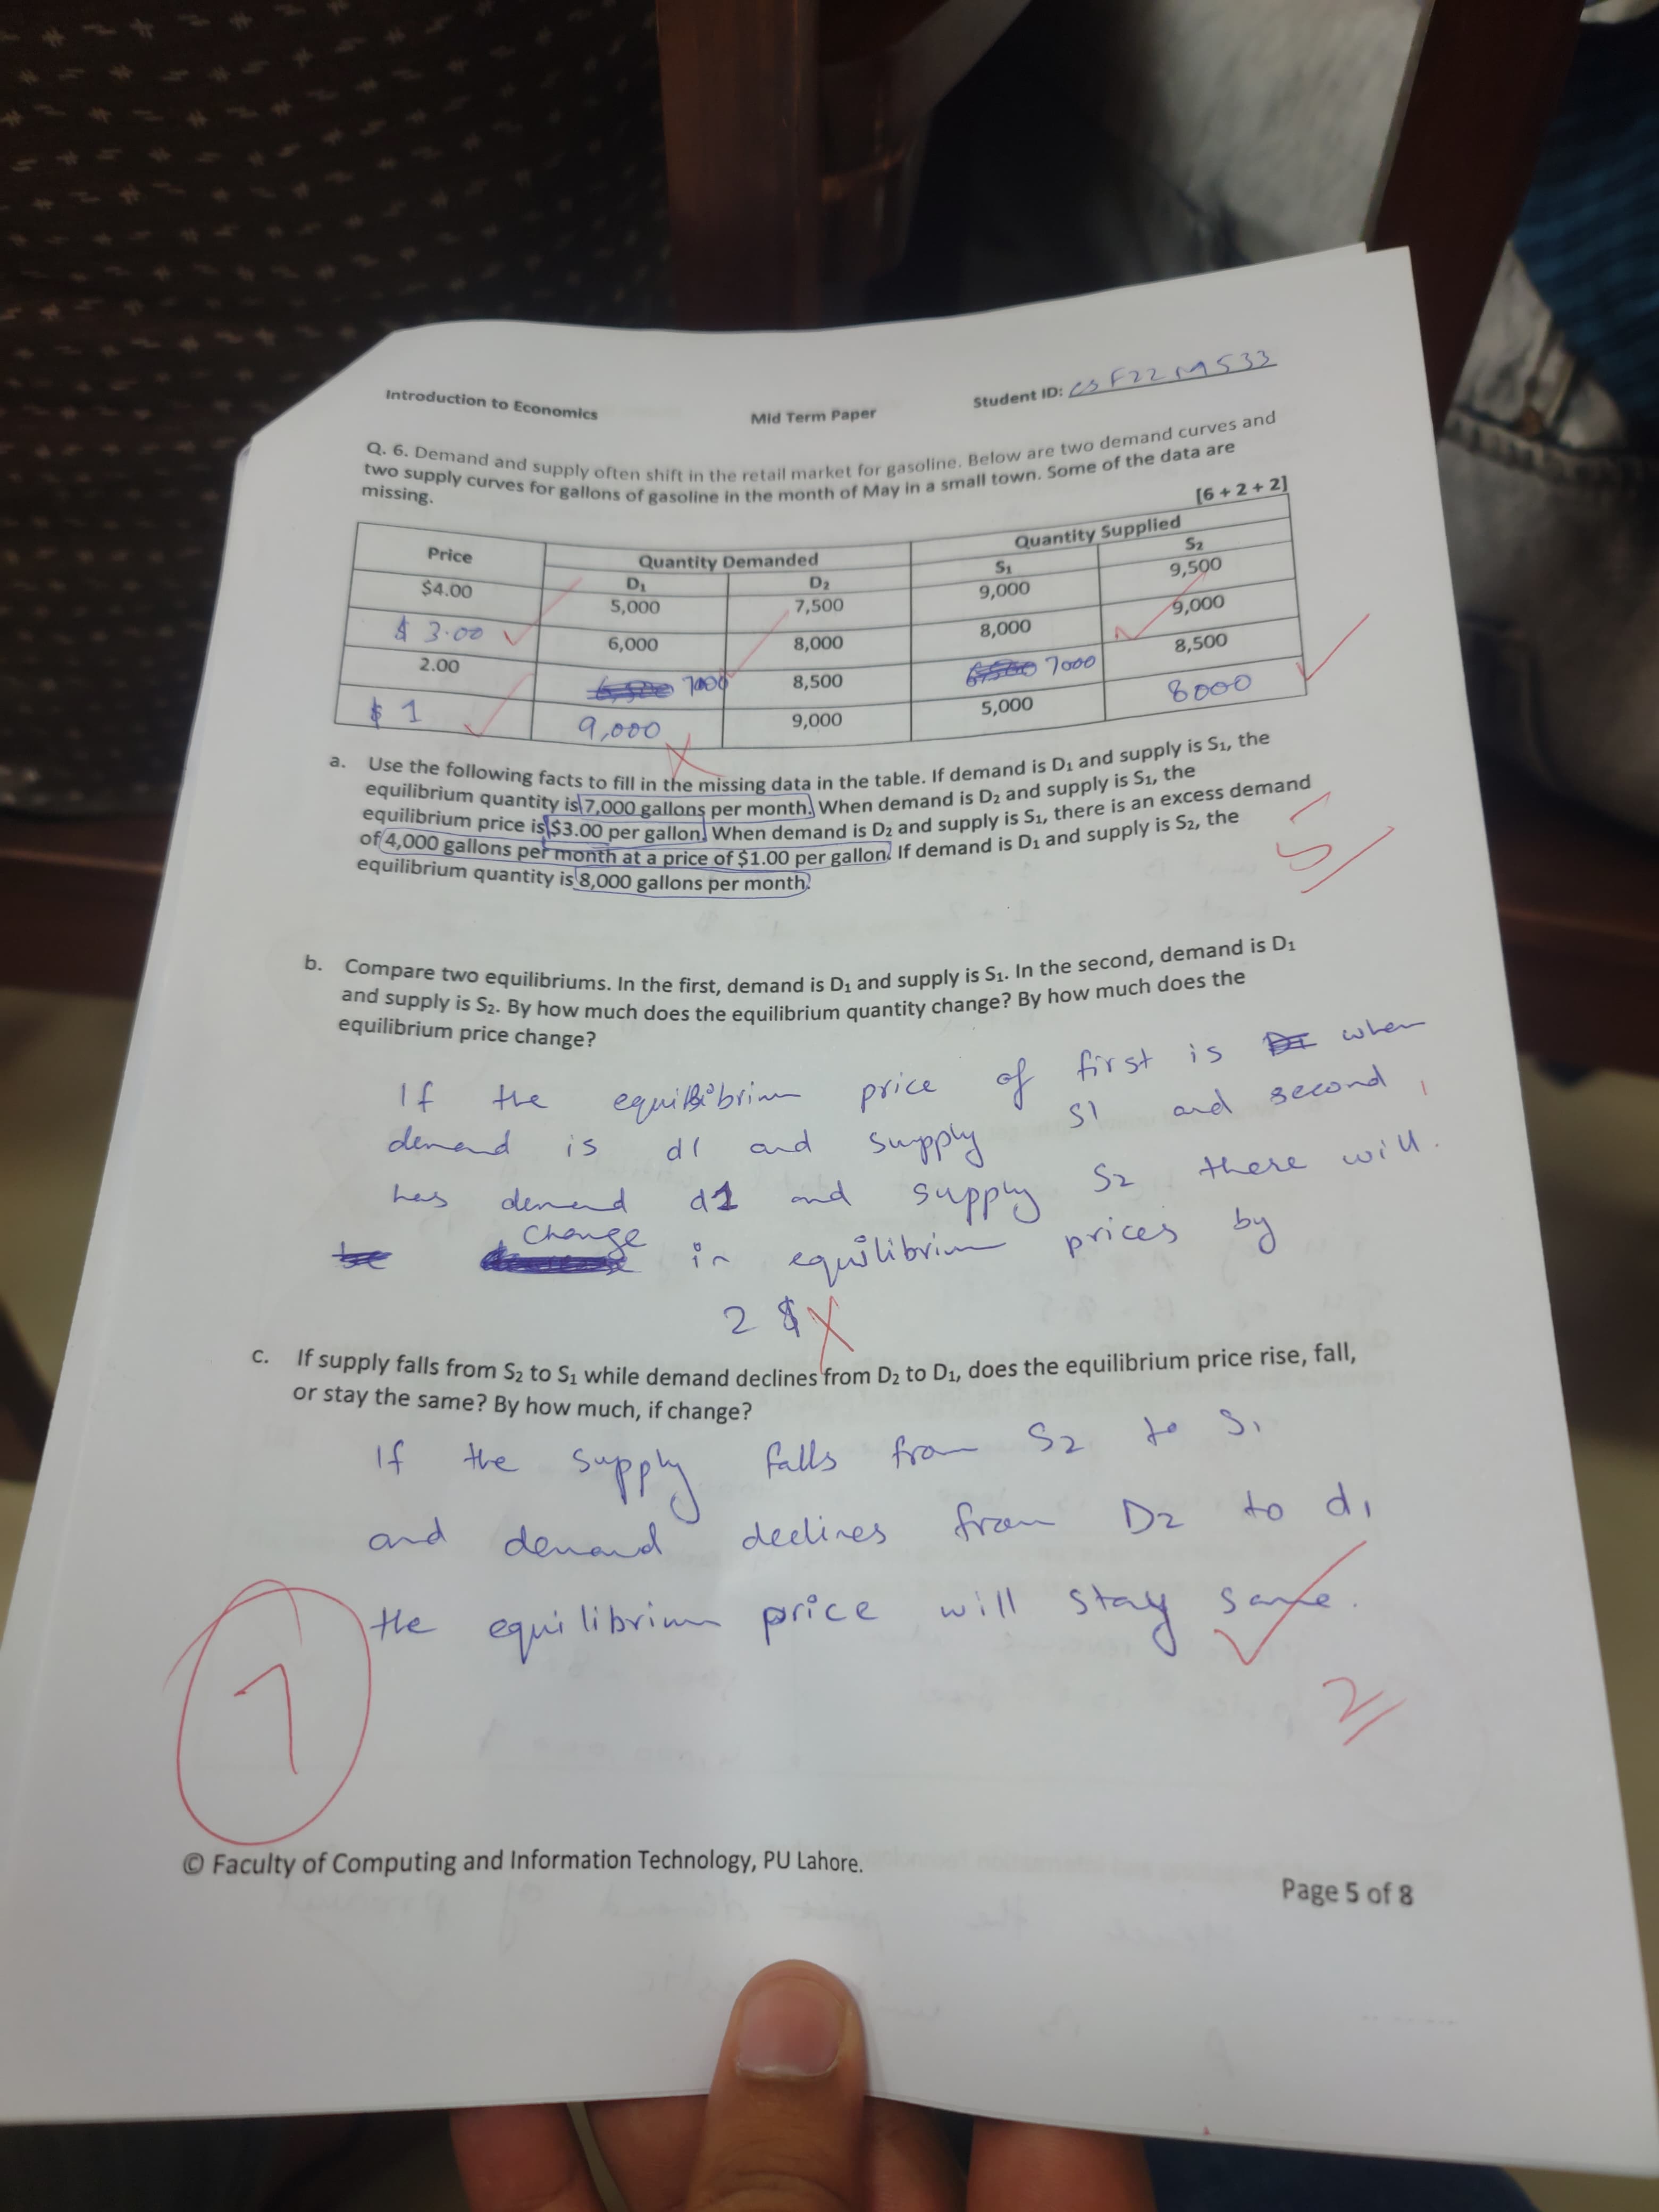 Introduction to Economics Mid Term Paper Student ID: CSF22M533
Q. 6. Demand and supply often shift in the retail market for gasoline. Below are two demand curves and
two supply curves for gallons of gasoline in the month of May in a small town. Some of the data are
missing. [6 + 2 + 2]
Price Quantity Demanded Quantity Supplied
D₁ D₂ S₁ S₂
$4.00 5,000 7,500 9,000 9,500
$ 3.00 6,000 8,000 8,000 9,000
2.00 7000 8,500 7000 8,500
$ 1 9,000 9,000 5,000 8000
a. Use the following facts to fill in the missing data in the table. If demand is D₁ and supply is S₁, the
equilibrium quantity is 7,000 gallons per month. When demand is D₂ and supply is S₁, the
equilibrium price is $3.00 per gallon. When demand is D₂ and supply is S₁, there is an excess demand
of 4,000 gallons per month at a price of $1.00 per gallon. If demand is D₁ and supply is S₂, the
equilibrium quantity is 8,000 gallons per month.
5
b. Compare two equilibriums. In the first, demand is D₁ and supply is S₁. In the second, demand is D₁
and supply is S₂. By how much does the equilibrium quantity change? By how much does the
equilibrium price change?
If the equilibrium price of first is when
demand is d1 and supply S1 and second
has demand d1 and supply S2 there will
change in equilibrium prices by
2 $
c. If supply falls from S₂ to S₁ while demand declines from D₂ to D₁, does the equilibrium price rise, fall,
or stay the same? By how much, if change?
If the supply falls from S2 to S1
and demand declines from D2 to d1
the equilibrium price will stay same.
7
2
© Faculty of Computing and Information Technology, PU Lahore.
Page 5 of 8